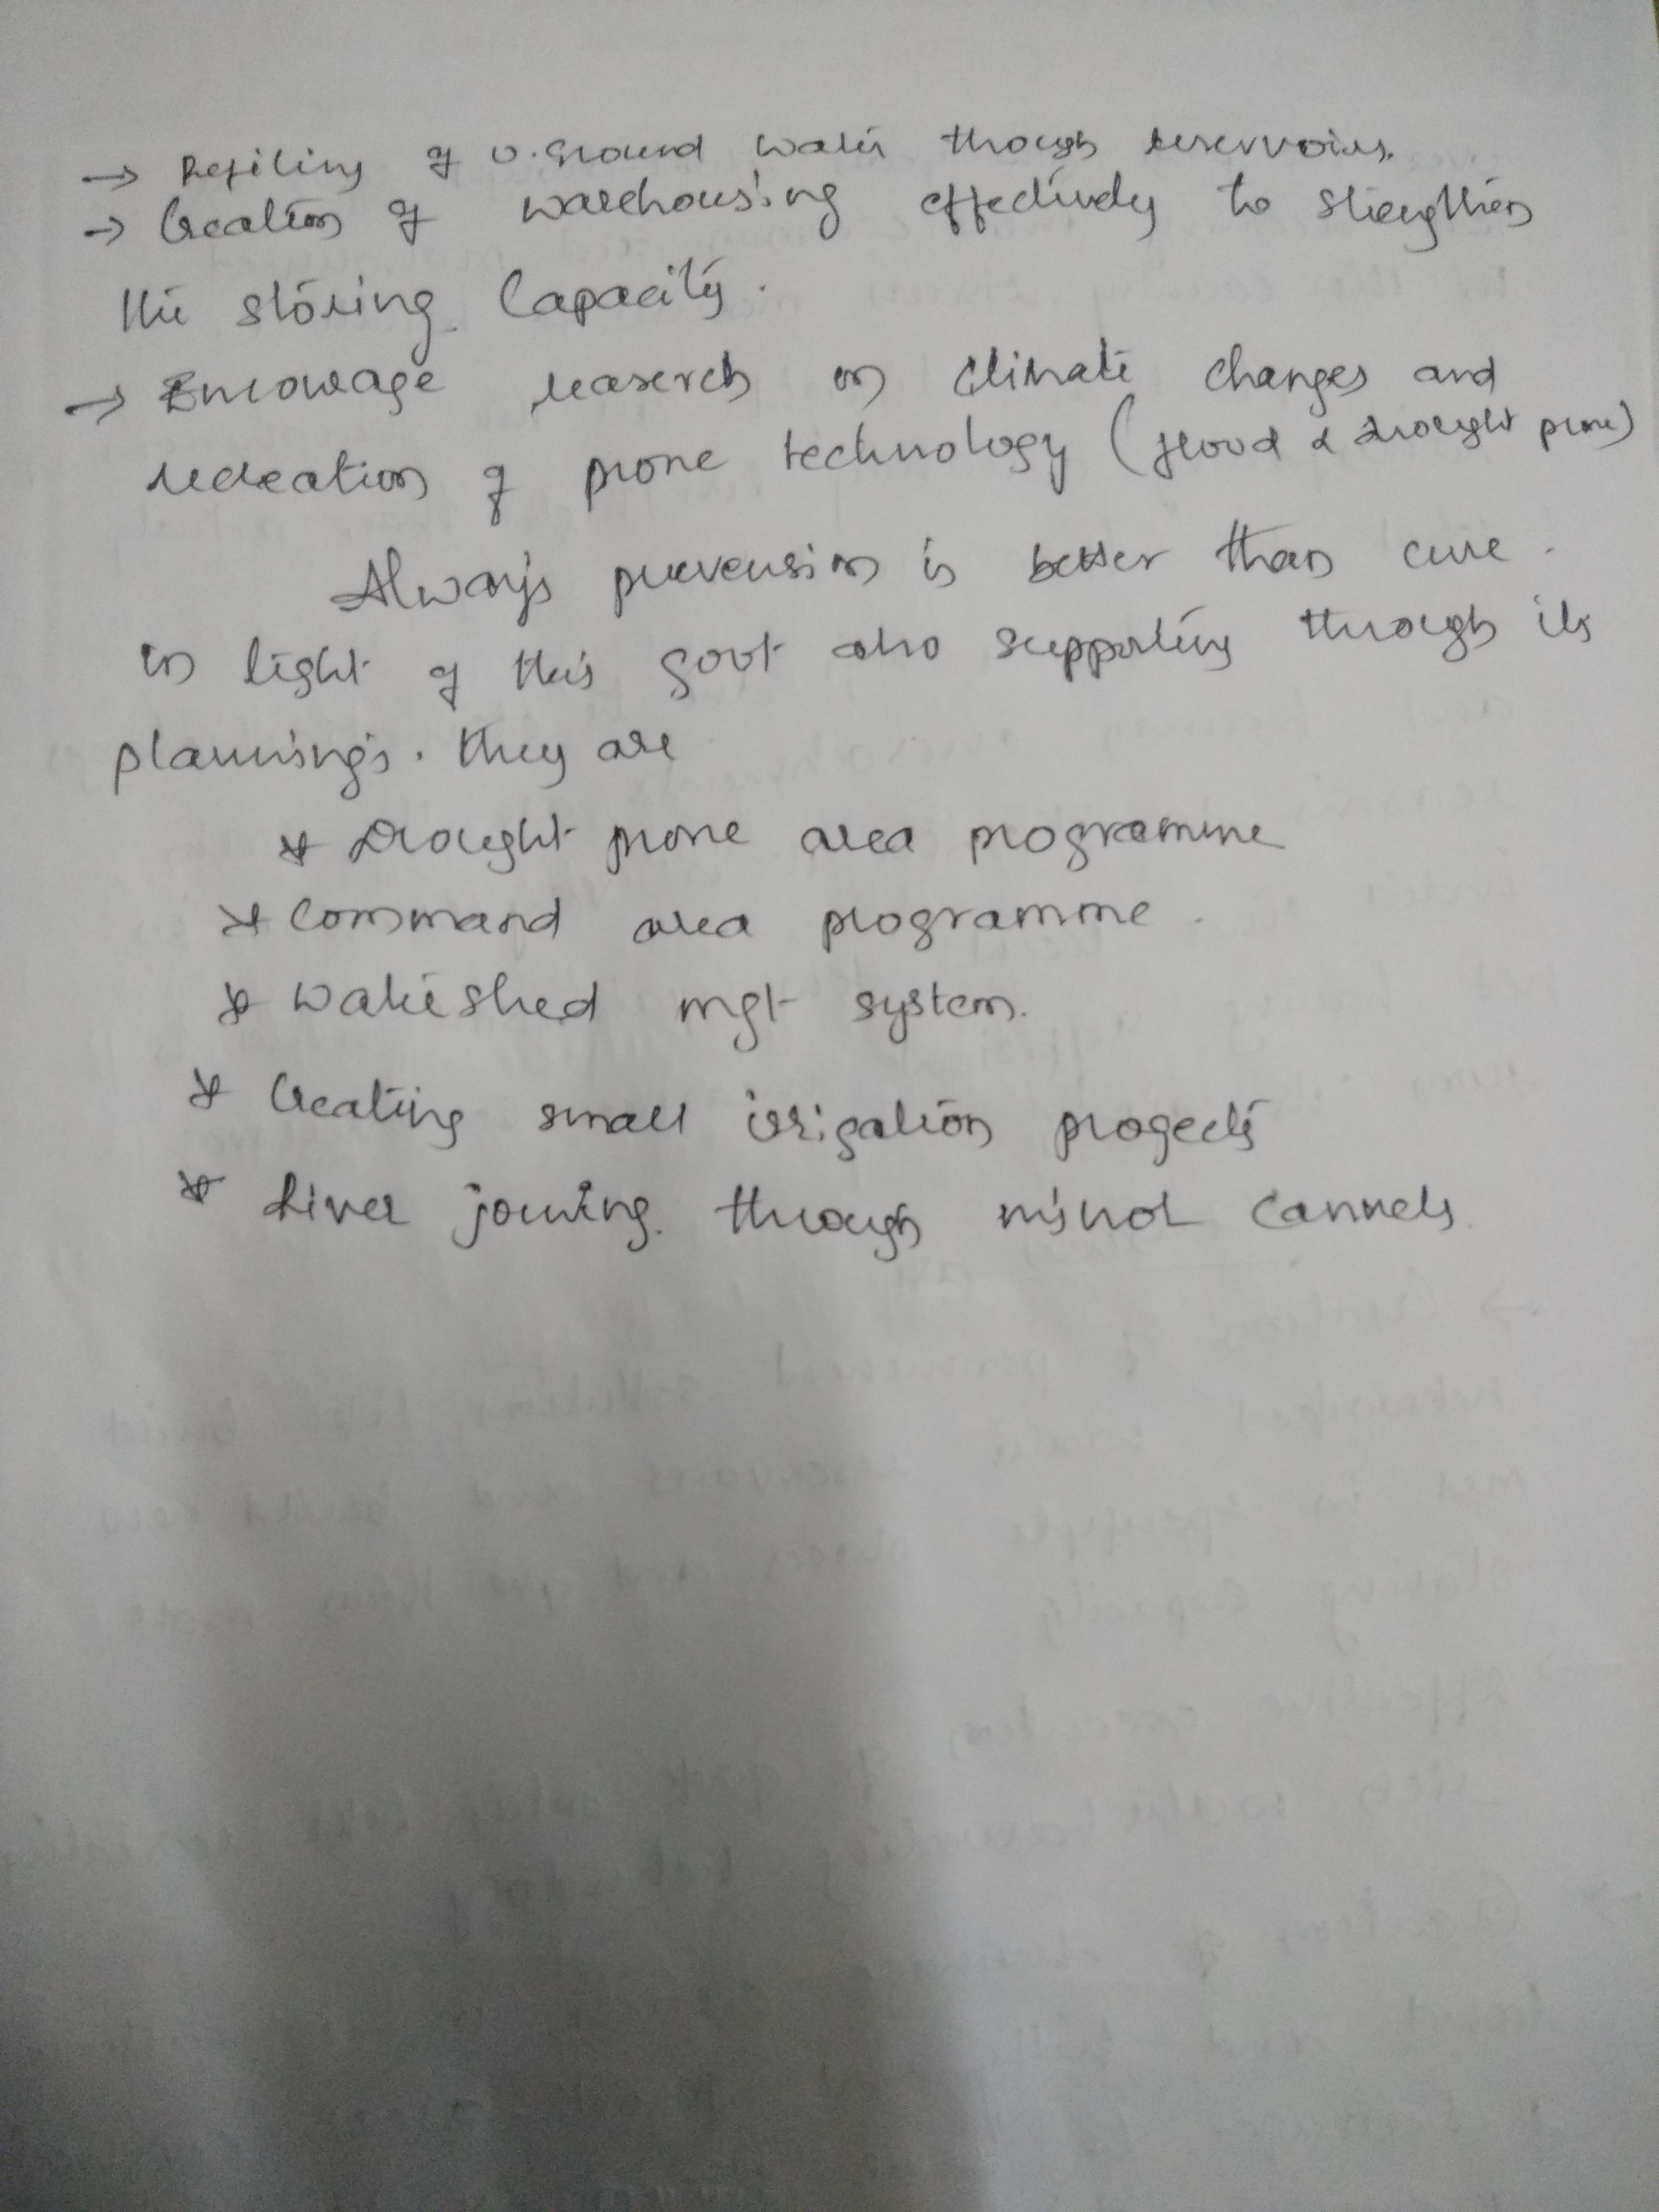 → Refiling of U.Ground water though reservoirs.
→ Creation of warehousing effectively to strengthen
the storing Capacity.
→ Encourage reaserch on climate changes and
recreation of prone technology (flood & drought prone)
Always prevension is better than cure.
in light of this govt also supporting through its
planning's. they are
* Drought prone area programme
* Command area programme.
* Watershed mgt system.
* Creating small irrigation progects
* River joining through minor cannels